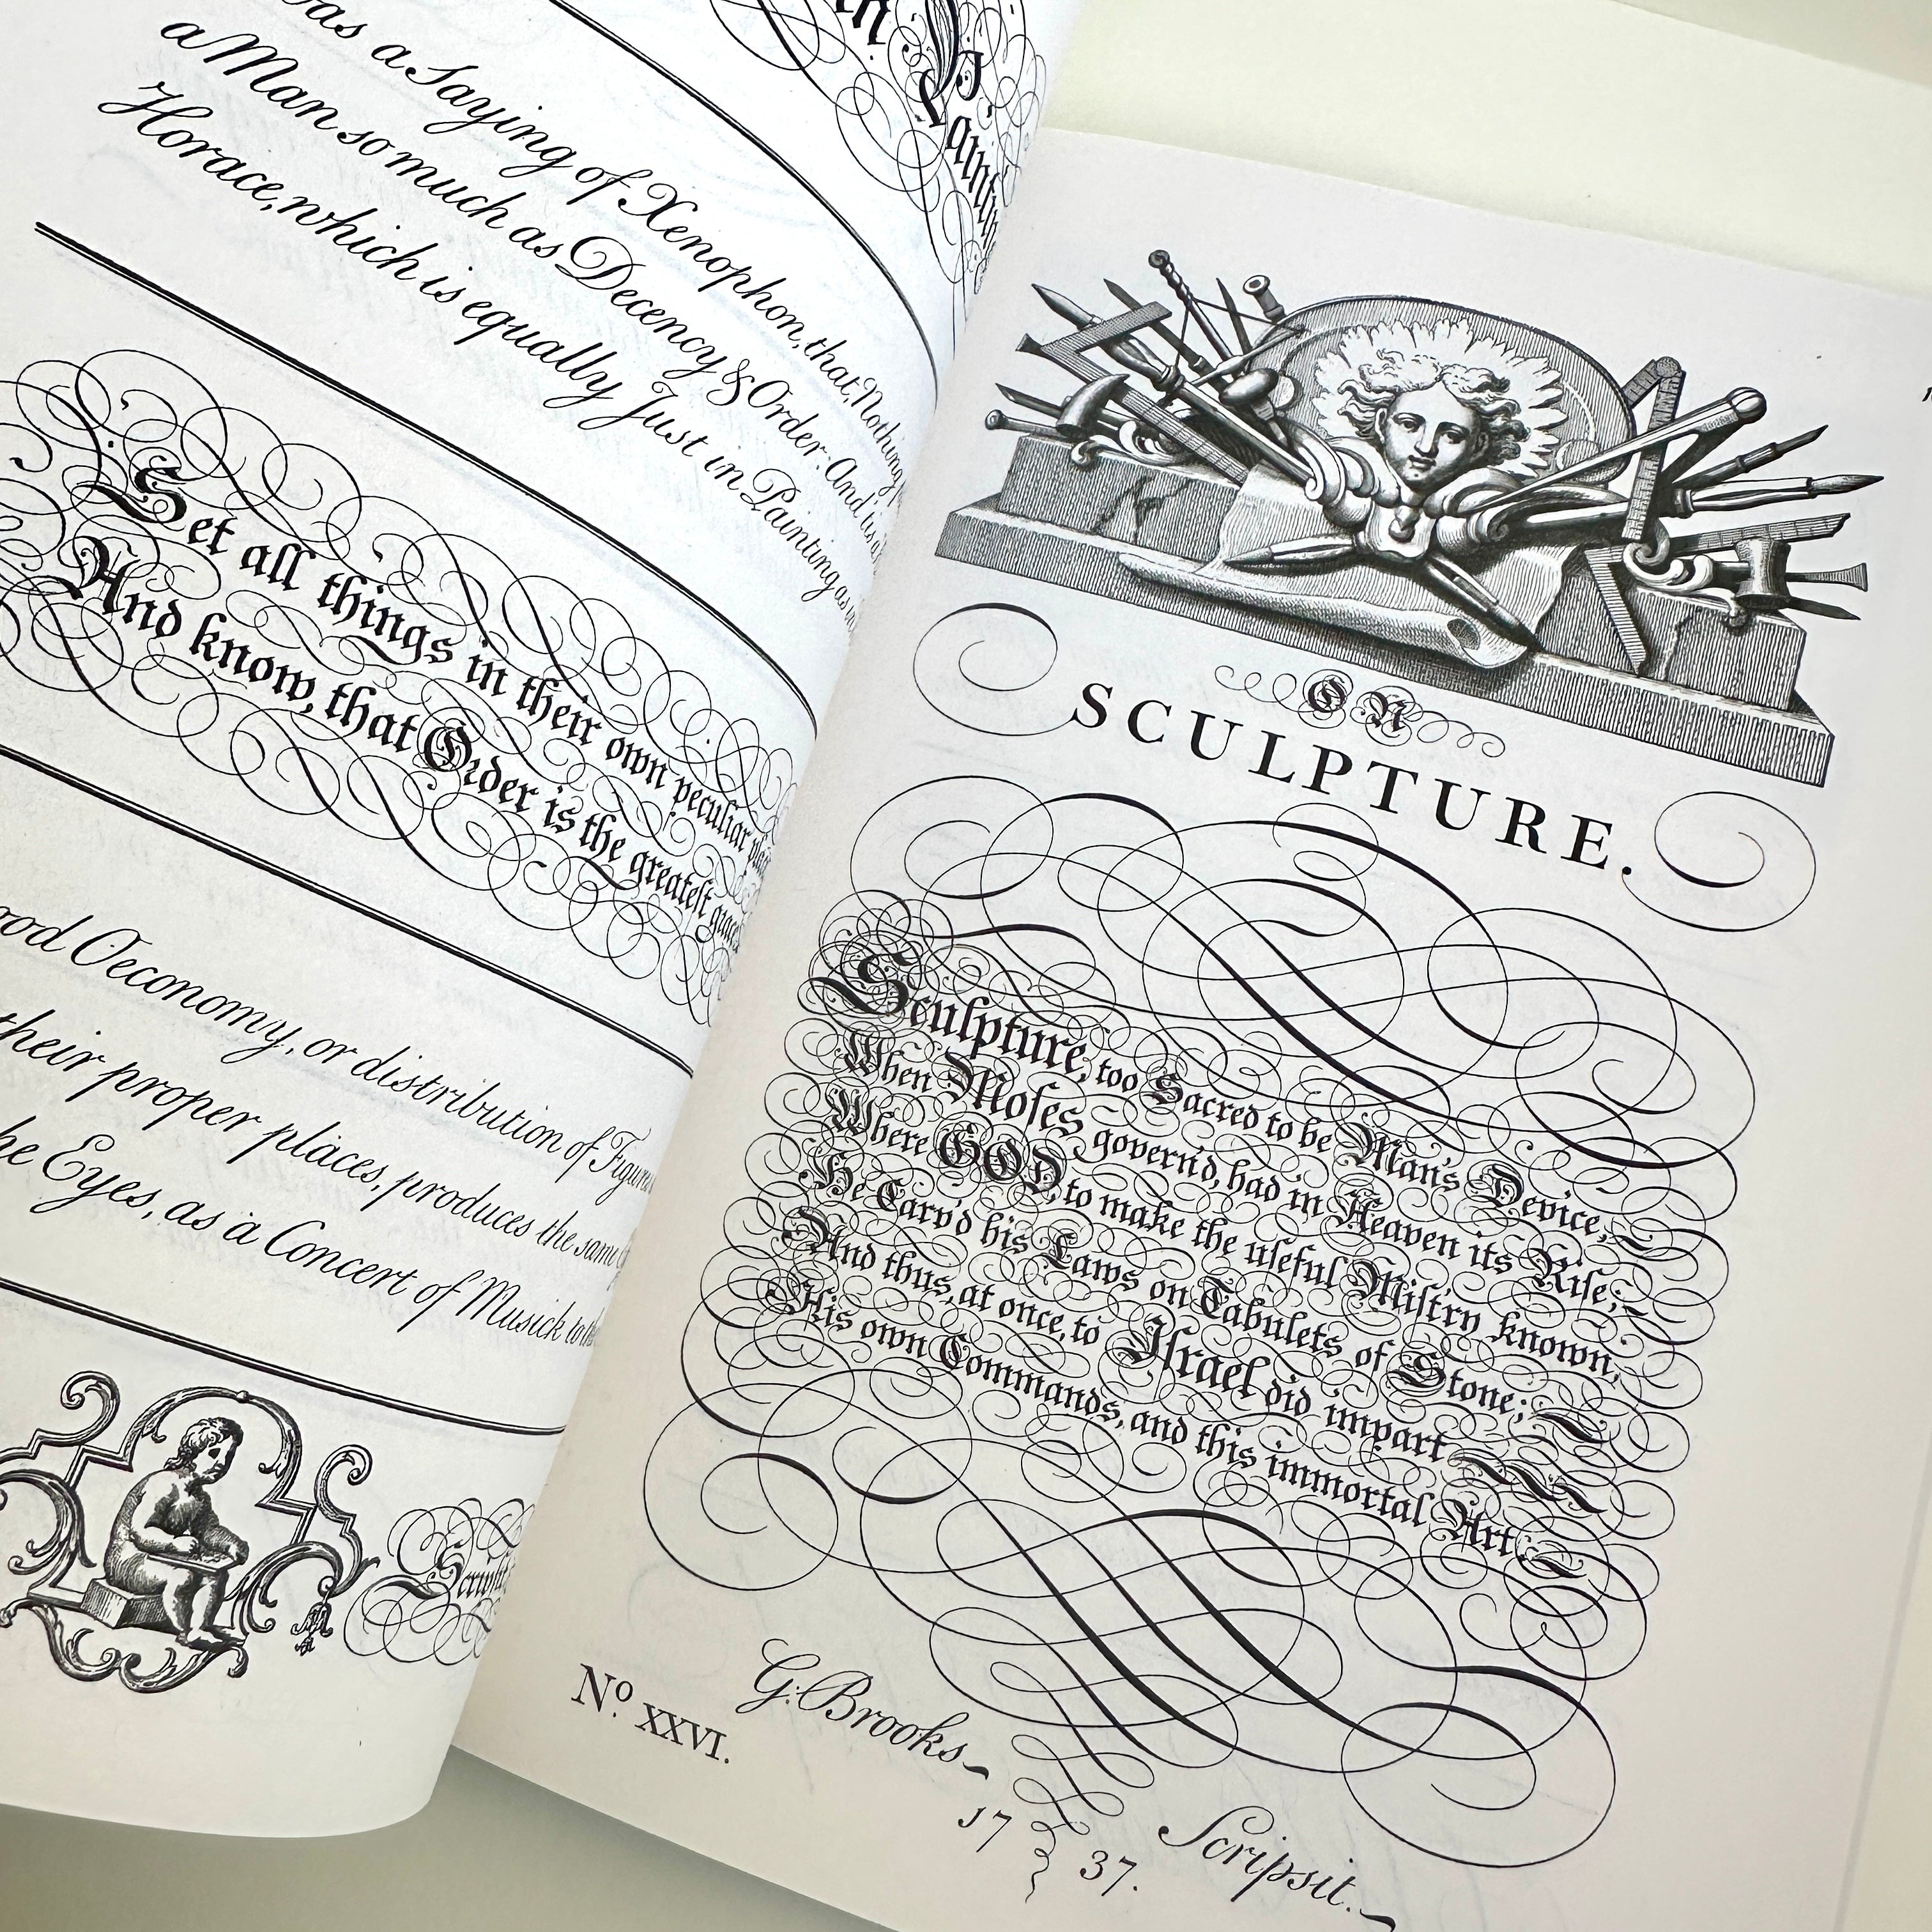 as a Saying of Xenophon, that, Nothing
a Man so much as Decency & Order. And
Horace, which is equally Just in Painting as
Set all things in their own peculiar
And know, that Order is the greatest
Oeconomy, or distribution of
their proper places, produces the same
Eyes, as a Concert of Musick to
ON
SCULPTURE.
Sculpture, too Sacred to be Man's Device,
When Moses govern'd, had in Heaven its Rise;
Where GOD, to make the useful Mist'ry known,
He Carv'd his Laws on Tabulets of Stone;
And thus, at once, to Israel did impart
His own Commands, and this immortal Art.
No. XXVI.
G: Brooks
Scripsit.
17 37.